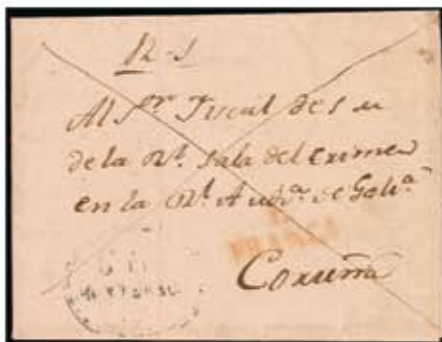 12-1
Al Sor. Fiscal de S. M.
de la Rl. Sala del Crimen
en la Rl. Auda. de Gala.
Coruña